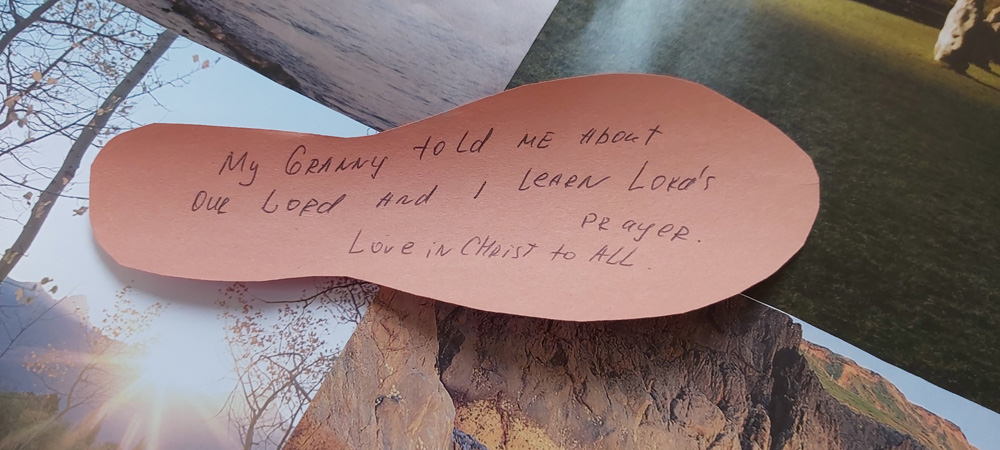 My GRANNY told ME About
OUR LORD And I LEARN LORd's
PRayER.
Love iN CHRisT to ALL.